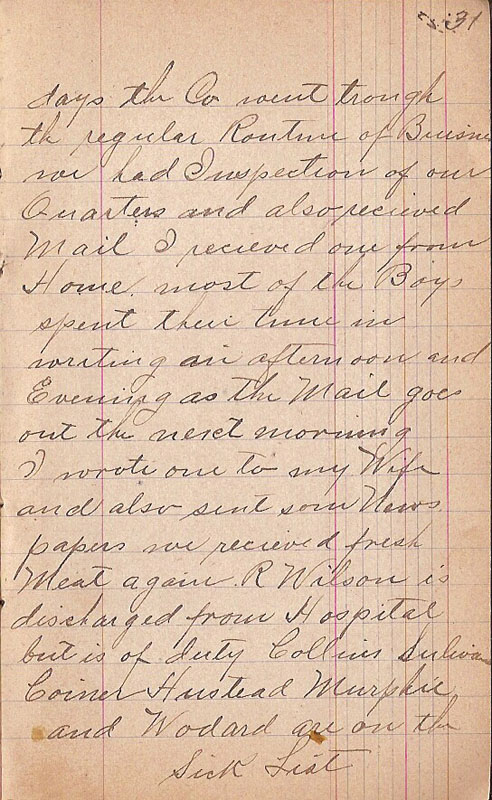 31
days the Co went trough
th regular Routine of Buisnes
we had Inspection of our
Quarters and also recieved
Mail I recieved one from
Home. most of the Boys
spent their time in
writing an afternoon and
Evening as the Mail goes
out the next morning
I wrote one to my Wife
and also sent som News
papers we recieved fresh
Meat again. R Wilson is
discharged from Hospital
but is of duty Collins Sulivan
Coiner Hustead Murphie
and Wodard are on the
Sick List